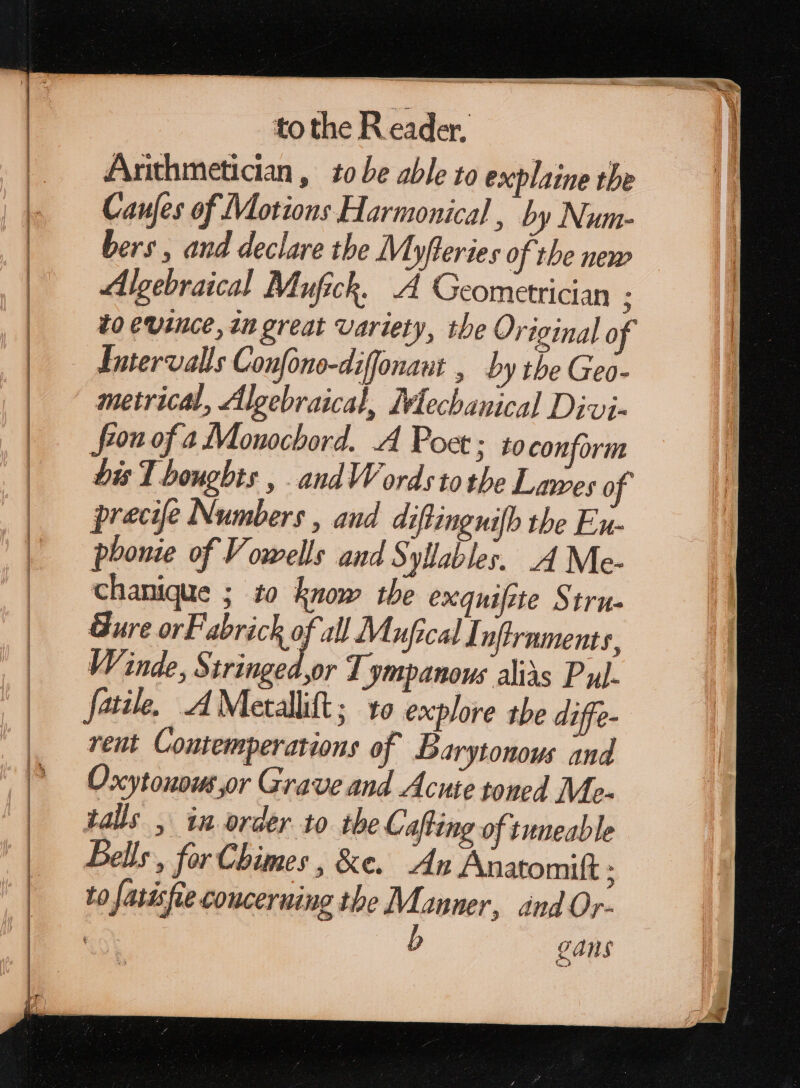 to the Reader.
Arithmetician, to be able to explaine the
Cauſes of Motions Harmonical, by Num-
bers, and declare the Myſteries of the new
Algebraical Muſick. A Geometrician ;
to evince, in great variety, the Original of
Intervalls Conſono-diſſonant, by the Geo-
metrical, Algebraical, Mechanical Divi-
ſion of a Monochord. A Poet; to conform
his Thoughts, and Words to the Lawes of
præciſe Numbers, and diſtinguiſh the Eu-
phonie of Vowells and Syllables. A Me-
chanique ; to know the exquiſite Stru-
cture or Fabrick of all Muſical Inſtruments,
Winde, Stringed, or Tympanous aliàs Pul-
ſatile. A Metalliſt; to explore the diffe-
rent Contemperations of Barytonous and
Oxytonous, or Grave and Acute toned Me-
talls, in order to the Caſting of tuneable
Bells, for Chimes, &c. An Anatomiſt ;
to ſatisfie concerning the Manner, and Or-
b gans